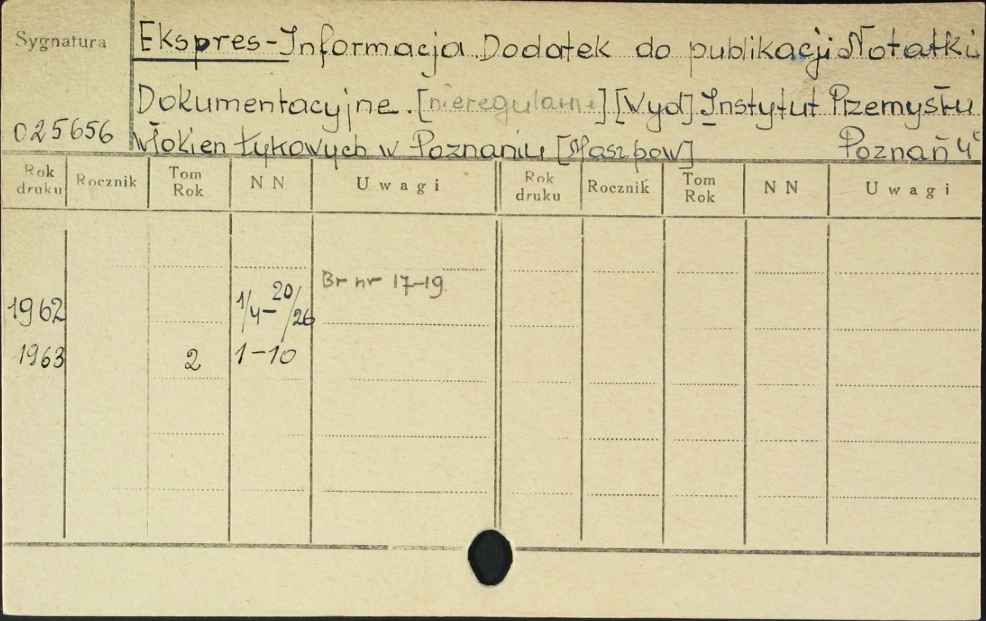 Sygnatura
Ekspres-Informacja. Dodatek do publikacji Notatki
Dokumentacyjne. [nieregularnie] [Wyd] Instytut Przemysłu
025656 Włokien Łykowych w Poznaniu [Maszpow] Poznań 4°
Rok druku Rocznik Tom Rok N N Uwagi Rok druku Rocznik Tom Rok N N Uwagi
Br nr 17-19
1962 1/4-20/26
1963 2 1-10